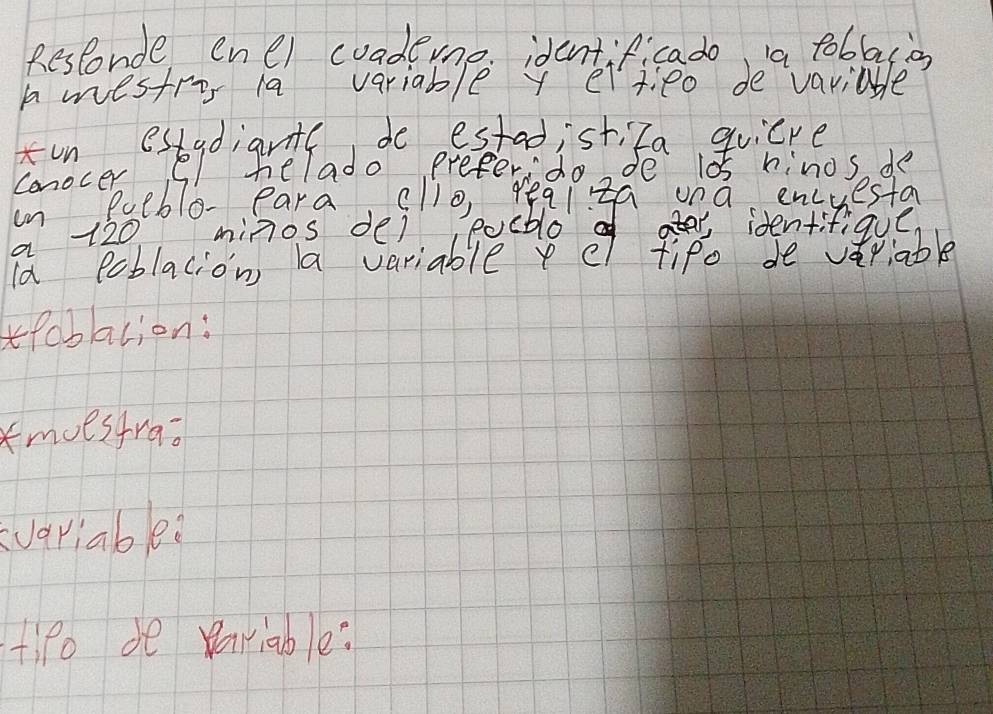 Responde en el cuaderno. identificado la poblacion
la muestra, la variable y el tipo de variable
*un estudiante de estadistiza quiere
conocer el helado preferido de los ninos de
un pueblo- para ello, realiza una encuesta
a 120 niños del pueblo identifique,
la poblacion, la variable y el tipo de variable
*poblacion:
*muestra:
*variable:
tipo de variable: